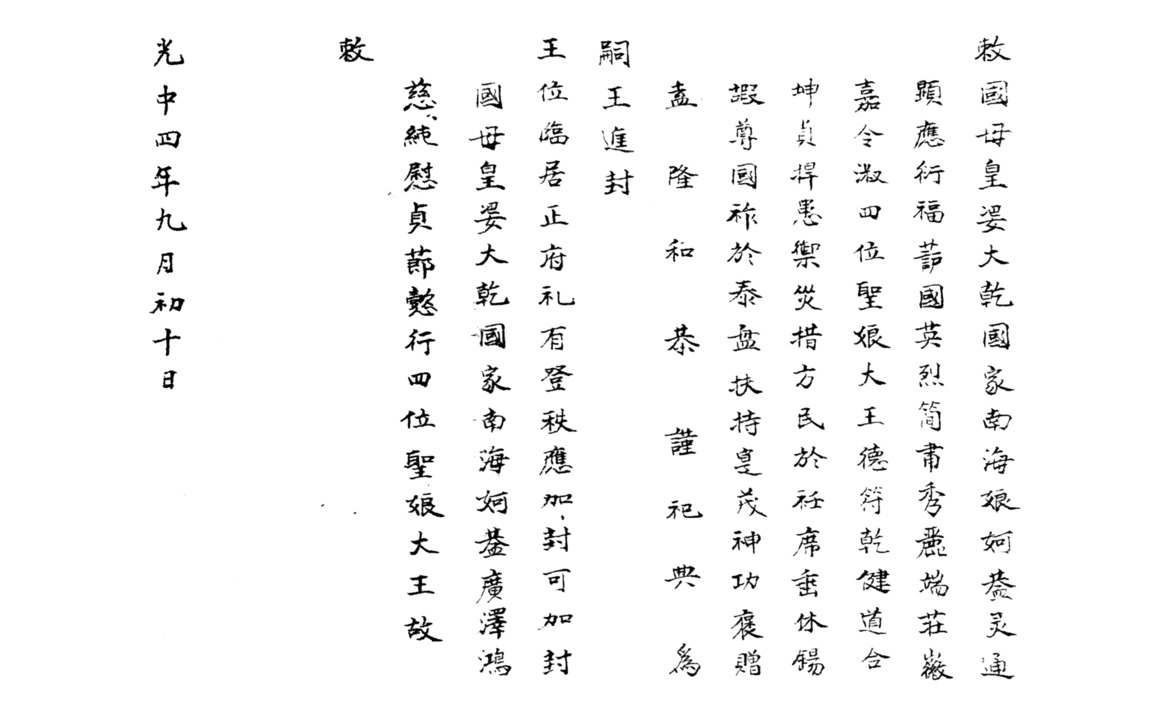 敕國母皇婆大乾國家南海娘妸蓋灵通
顯應衍福莭國英烈简肅秀麗端莊嶶
嘉令淑四位聖娘大王德符乾健道合
坤貞捍患禦災措方民於袵席垂休錫
嘏尊國祚於泰盘扶持寔茂神功褒贈
盍隆和恭謹祀典為
嗣王進封
王位臨居正府礼有登秩應加封可加封
國母皇婆大乾國家南海妸蓋廣澤鴻
慈純慰貞莭懿行四位聖娘大王故
敕
光中四年九月初十日